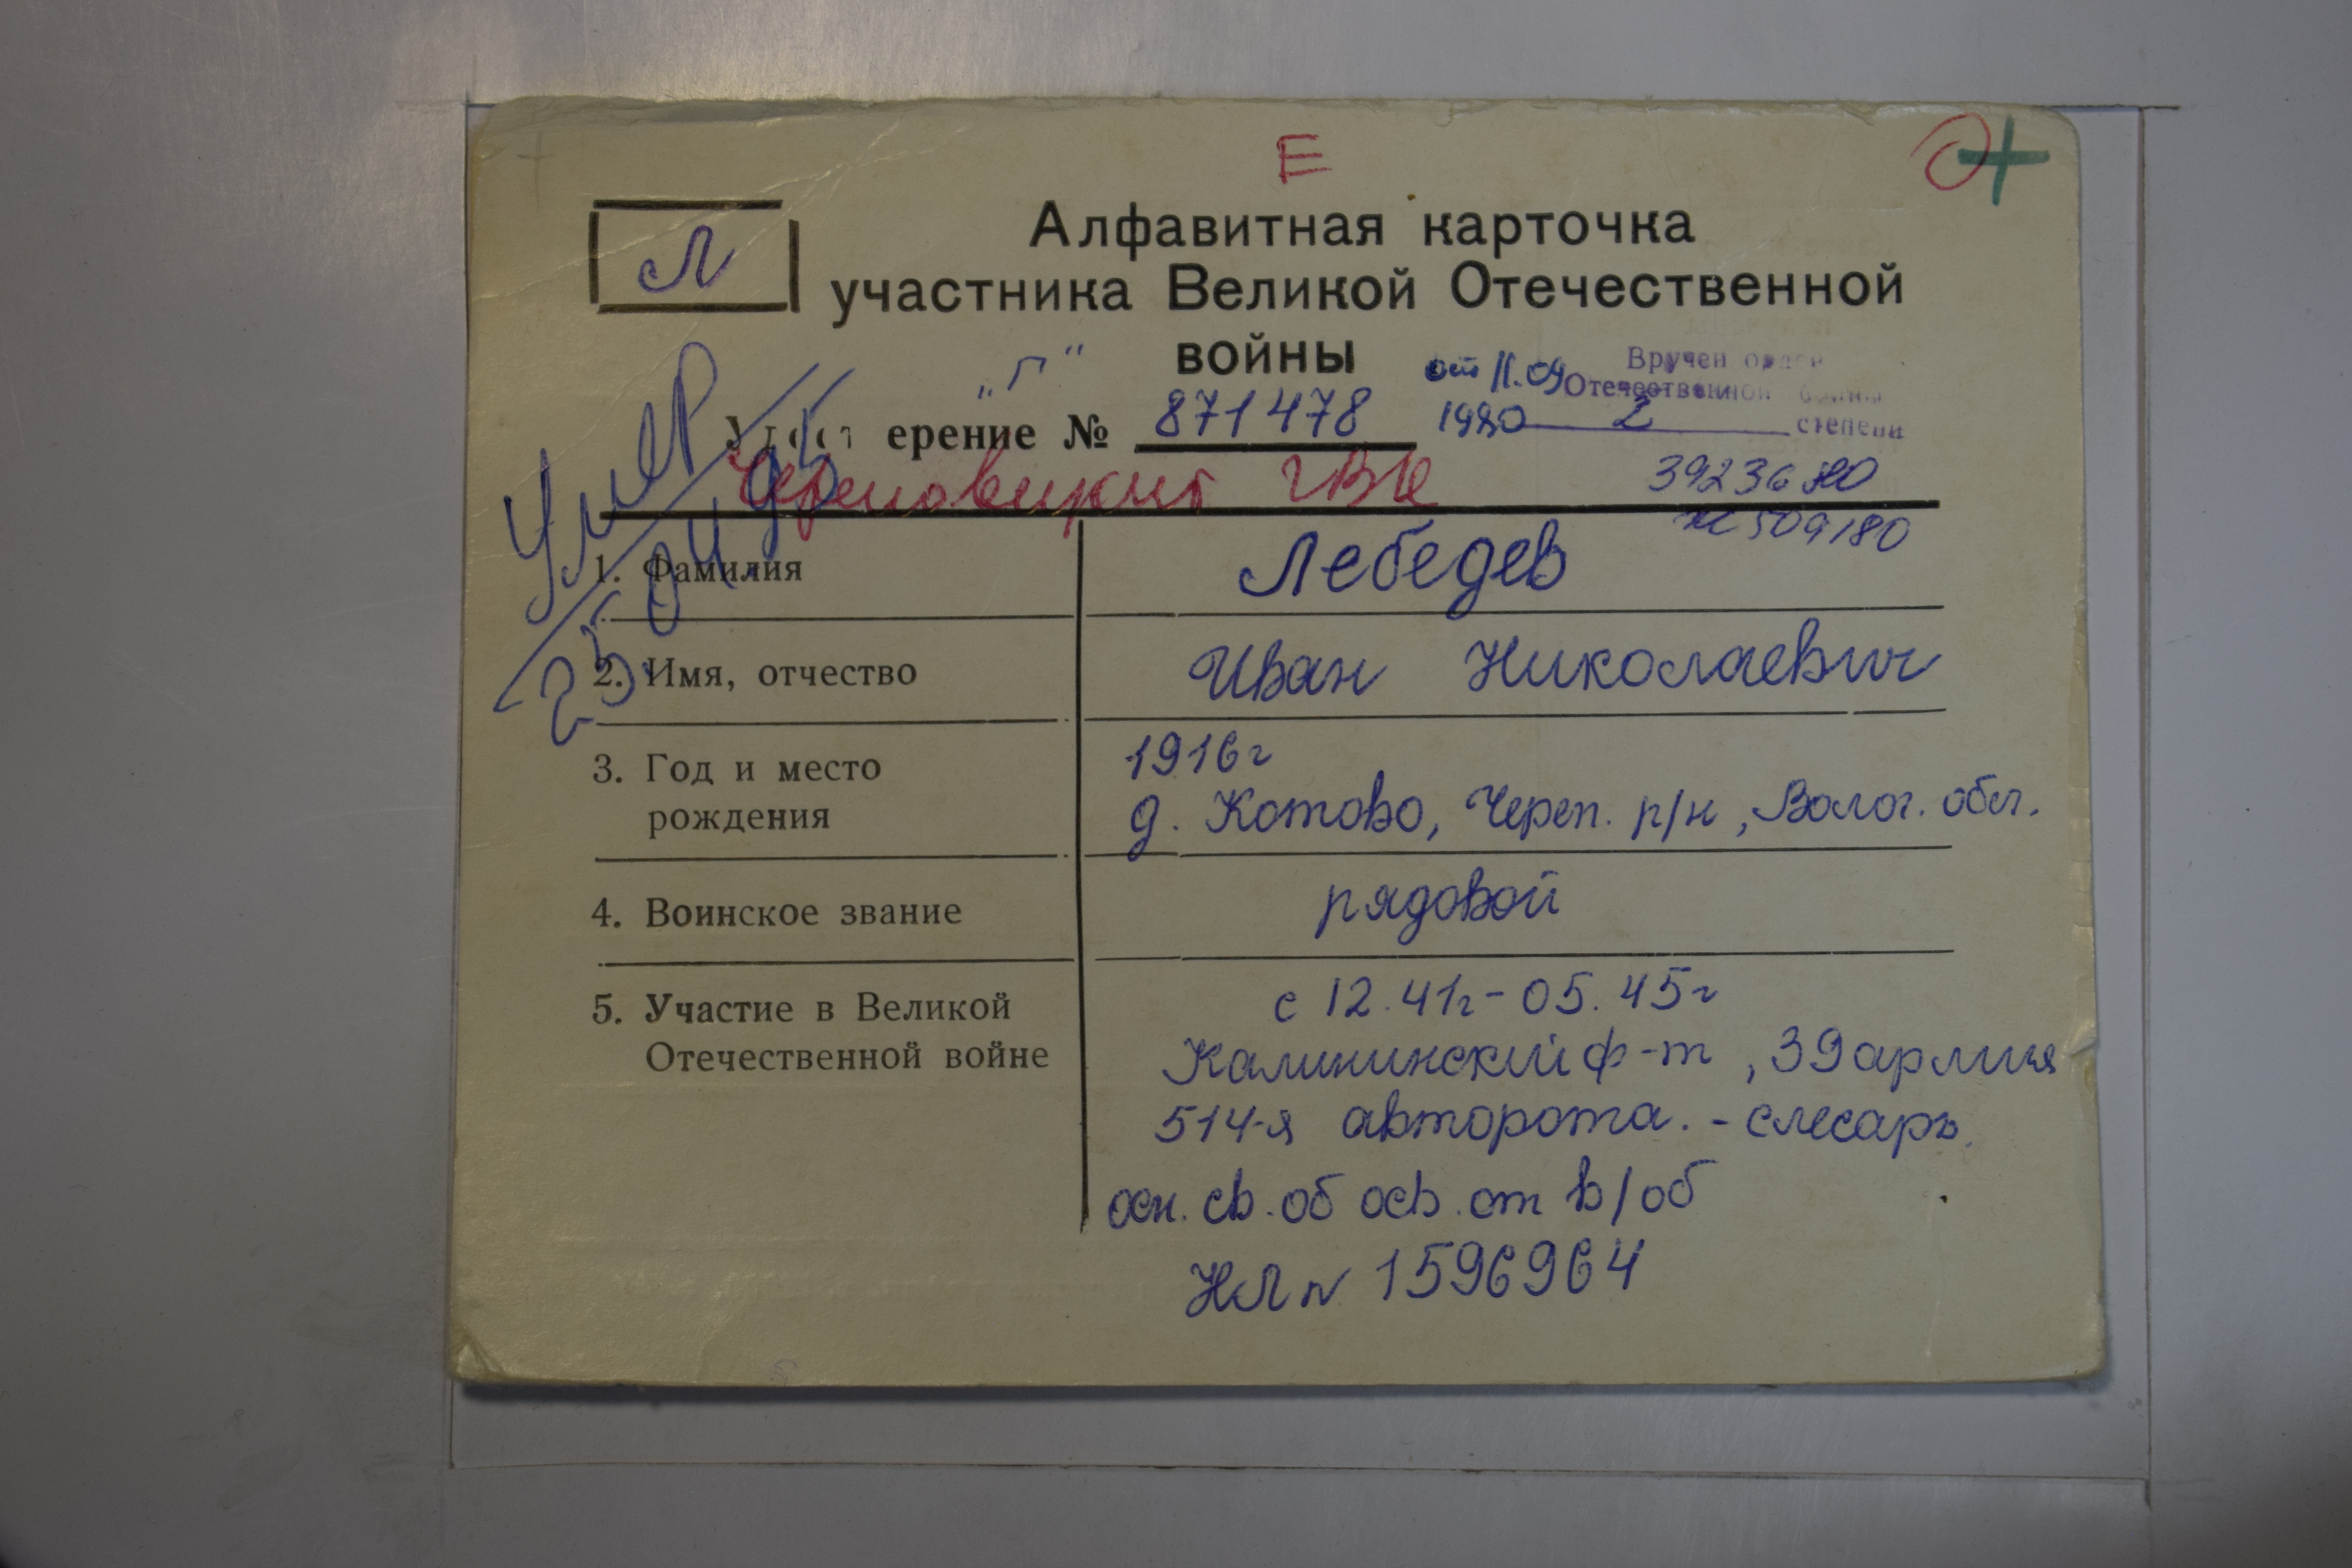 Е
Л
Алфавитная карточка
участника Великой Отечественной
войны
„Г“
от 11.09
1980
Вручен орден
Отечественной войны
2 степени
ерение № 871478
Череповецкий ГВК
3923680
509180
Умер
25.04.95
1. Фамилия Лебедев
2. Имя, отчество Иван Николаевич
3. Год и место рождения 1916г
д. Котово, Череп. р/н, Волог. обл.
4. Воинское звание рядовой
5. Участие в Великой Отечественной войне с 12.41г - 05.45г
Калининский ф-т, 39 армия
514-я авторота. - слесарь.
осн. св. об осв. от в/об
НЛ № 1596964